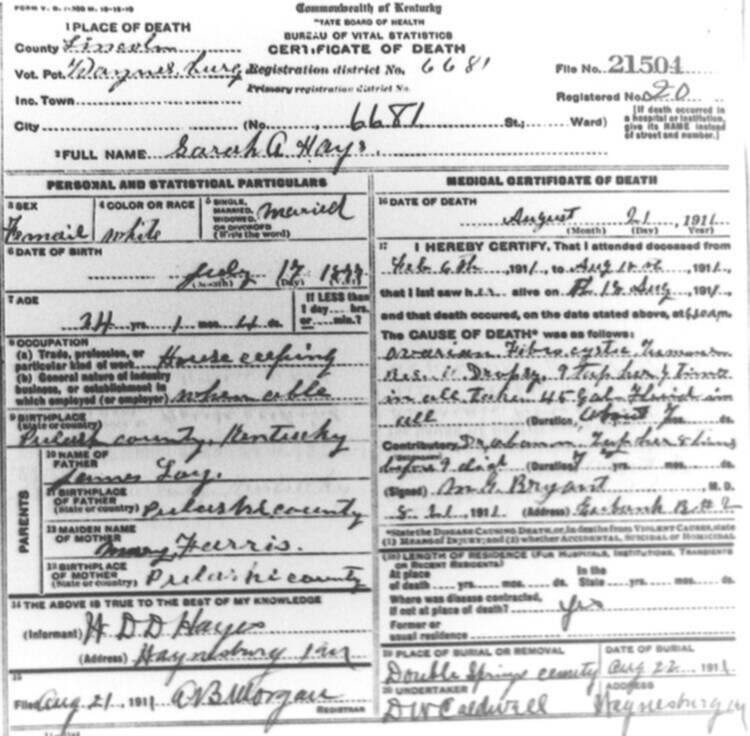 Commonwealth of Kentucky
STATE BOARD OF HEALTH
BUREAU OF VITAL STATISTICS
CERTIFICATE OF DEATH
1 PLACE OF DEATH
County Lincoln
Vot. Pct. Waynesburg Registration district No. 6681 File No. 21504
Inc. Town Primary registration district No. Registered No. 20
City (No. 6681 St.; Ward)
[If death occurred in a hospital or institution, give its NAME instead of street and number.]
2 FULL NAME Sarah A Hays.
PERSONAL AND STATISTICAL PARTICULARS
3 SEX
Femail
4 COLOR OR RACE
white
5 SINGLE, MARRIED, WIDOWED, OR DIVORCED (Write the word)
Married
6 DATE OF BIRTH
July 17 1877
(Month) (Day) (Year)
7 AGE
34 yrs. 1 mos. 4 ds.
If LESS than 1 day.... hrs. or.... min.?
8 OCCUPATION
(a) Trade, profession, or particular kind of work House ceeping
(b) General nature of industry business, or establishment in which employed (or employer) when able
9 BIRTHPLACE
(State or country)
county, Kentucky
PARENTS
10 NAME OF FATHER
James
11 BIRTHPLACE OF FATHER
(State or country) Pulaski county
12 MAIDEN NAME OF MOTHER
Mary Farris.
13 BIRTHPLACE OF MOTHER
(State or country) Pulaski county
14 THE ABOVE IS TRUE TO THE BEST OF MY KNOWLEDGE
(Informant) H D D Hayes
(Address)
15
Filed Aug 21 1911 A B Morgan
REGISTRAR
MEDICAL CERTIFICATE OF DEATH
16 DATE OF DEATH
August 21, 1911
(Month) (Day) (Year)
17 I HEREBY CERTIFY, That I attended deceased from
Feb 6th, 1911, to Aug 18, 1911,
that I last saw her alive on 18 Aug, 1911,
and that death occured, on the date stated above, at
The CAUSE OF DEATH* was as follows:
Ovarian Fibro cystic
Dropsy. tap her 9 times
in all taken 45 Gal Fluid in
all (Duration) About 7
Contributory tap her
before I died (Duration) yrs. mos. ds.
(Signed) Bryant M. D.
8 21, 1911 (Address) Eubank
*State the DISEASE CAUSING DEATH, or, in deaths from VIOLENT CAUSES, state (1) MEANS OF INJURY; and (2) whether ACCIDENTAL, SUICIDAL or HOMICIDAL
(18) LENGTH OF RESIDENCE (FOR HOSPITALS, INSTITUTIONS, TRANSIENTS OR RECENT RESIDENTS)
At place of death yrs. mos. ds. In the State yrs. mos. ds.
Where was disease contracted, If not at place of death? yes
Former or usual residence
19 PLACE OF BURIAL OR REMOVAL
Double Springs
DATE OF BURIAL
Aug 22, 1911
20 UNDERTAKER
D W Caldwell
ADDRESS